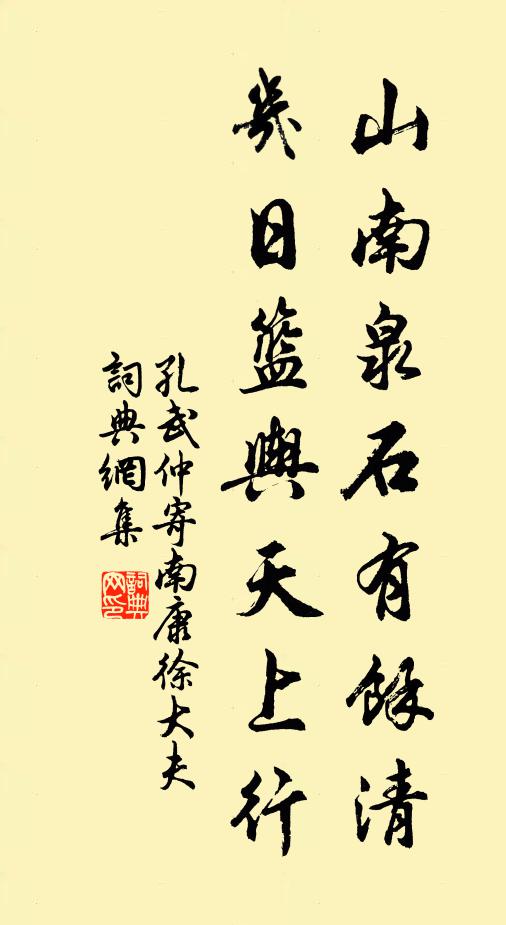 山南泉石有餘清
幾日籃輿天上行
孔武仲寄南康徐大夫
詞典網集
詞典網印